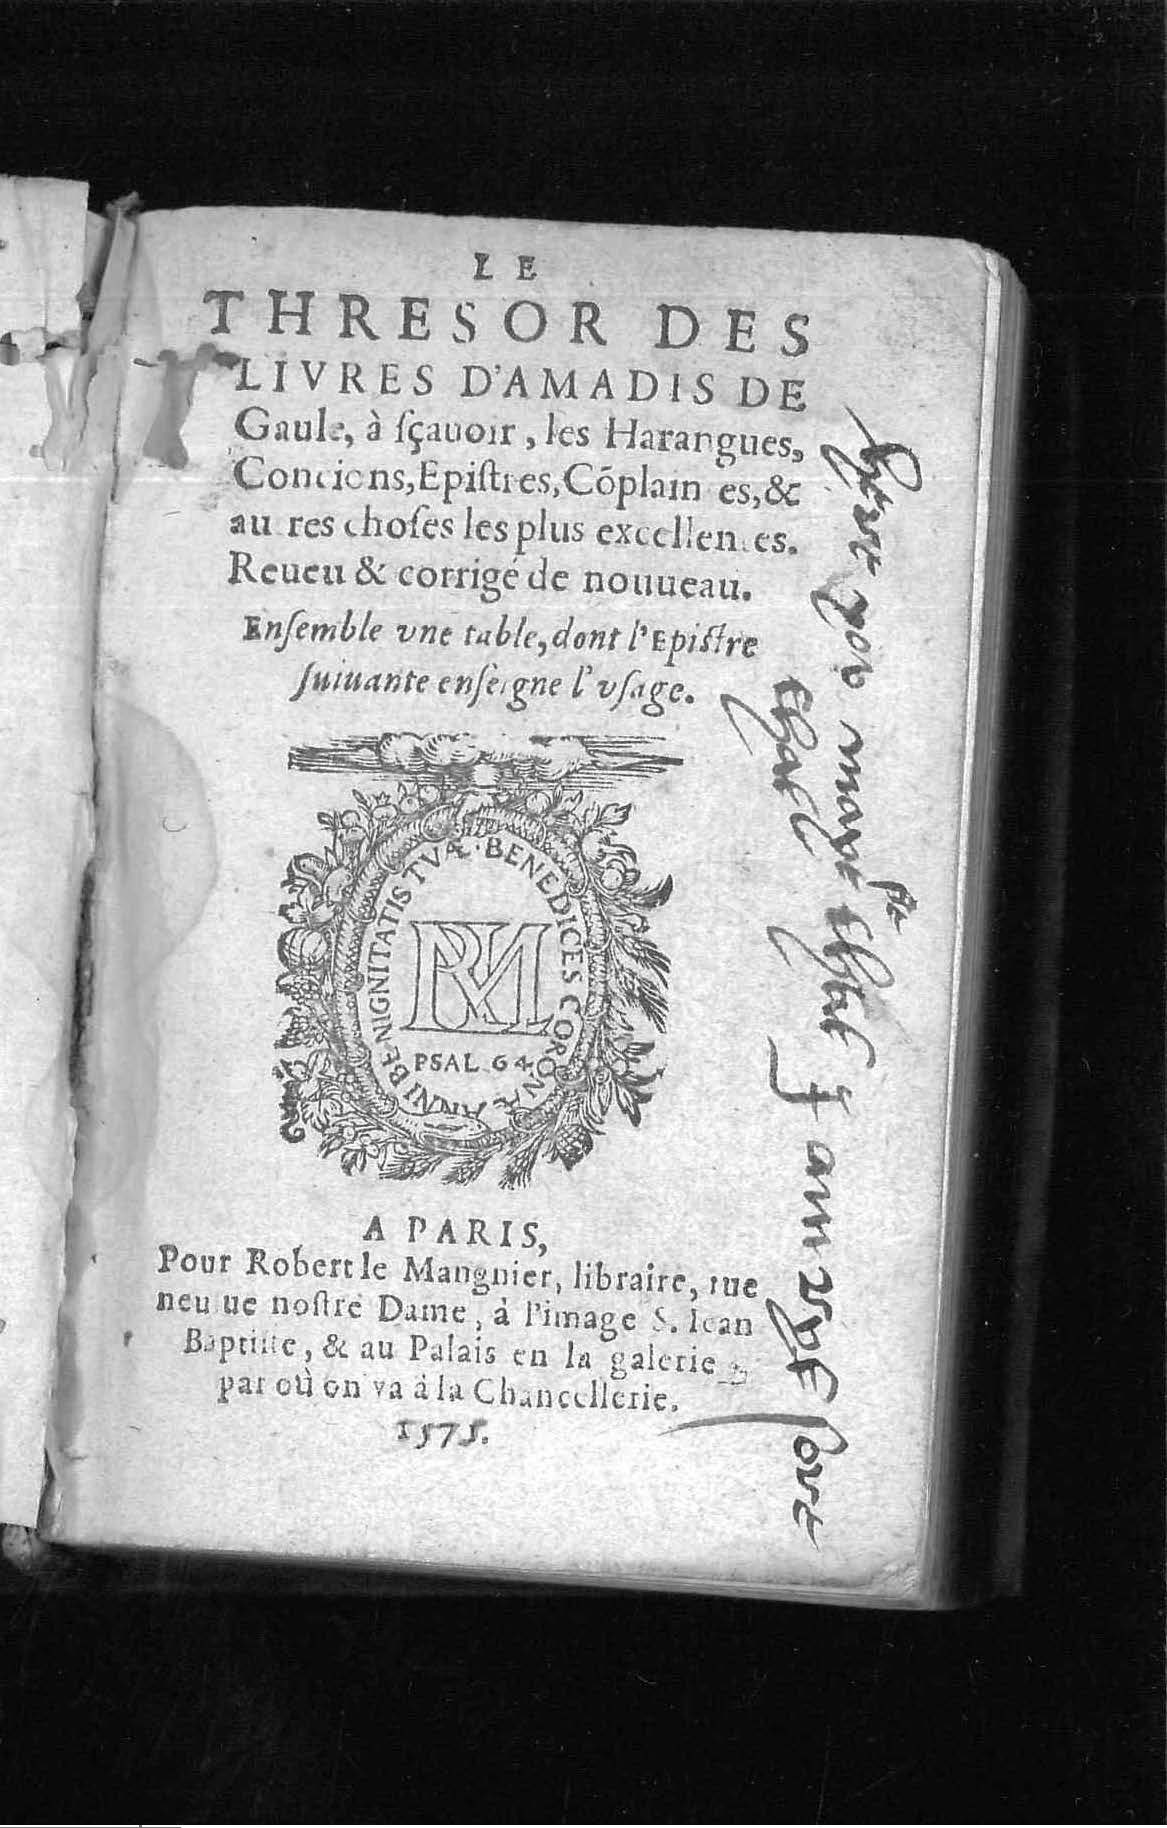 LE
THRESOR DES
LIVRES D'AMADIS DE
Gaule, à ſçauoir, les Harangues,
Concions, Epiſtres, Cõplain es, &
au res choſes les plus excellen es.
Reueu & corrigé de nouueau.
Enſemble vne table, dont l'Epiſtre
ſuiuante enſeigne l'vſage.
ANNI BENIGNITATIS TVÆ · BENEDICES CORONÆ
RM
PSAL 64
A PARIS,
Pour Robert le Mangnier, libraire, rue
neuue noſtre Dame, à l'image S. Iean
Baptiſte, & au Palais en la galerie
par où on va à la Chancellerie.
1575.